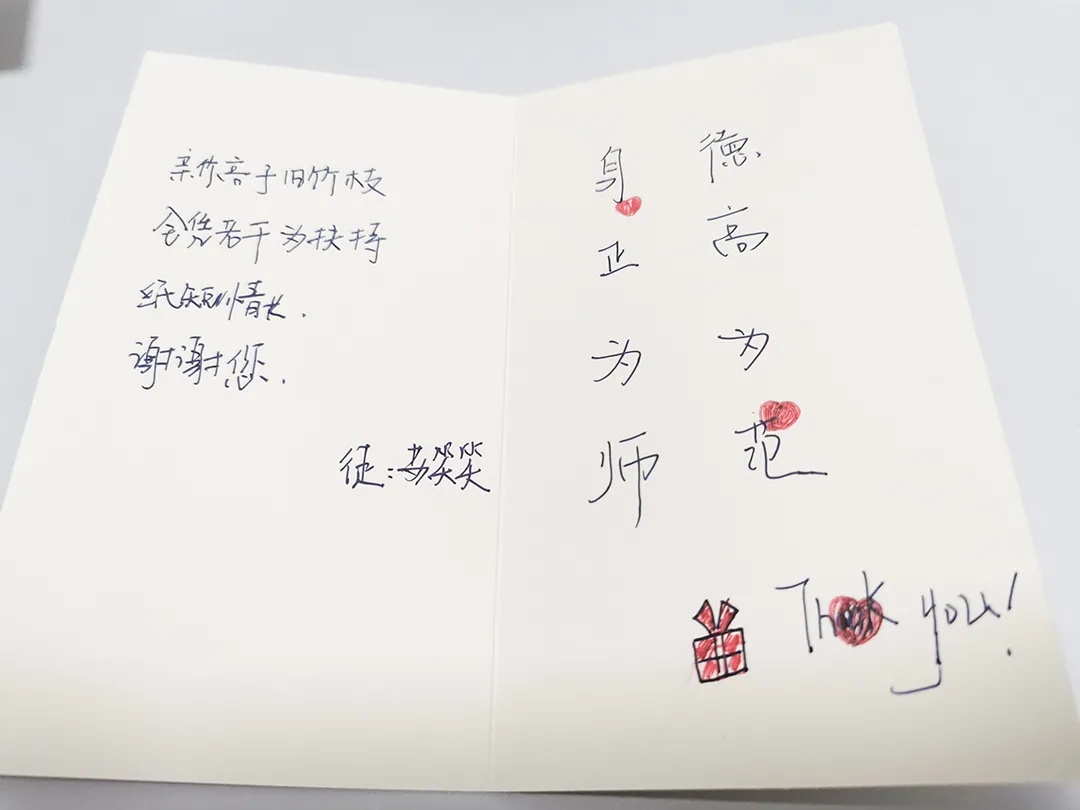 新竹高于旧竹枝
全凭老干为扶持
纸短情长.
谢谢您.
徒:苏笑笑
德高为范
身正为师
Thank you!